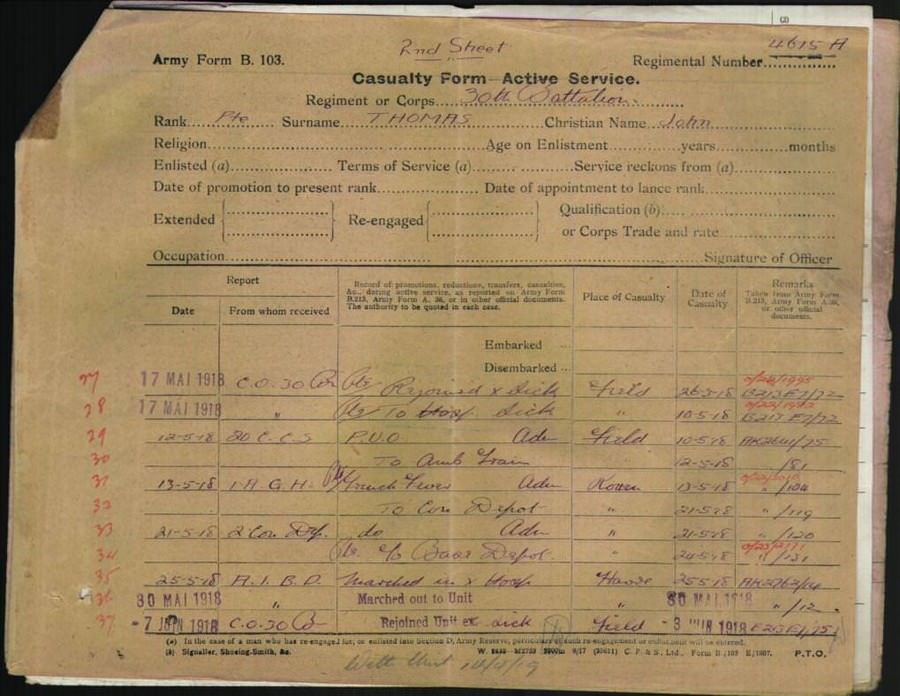 2nd Sheet
4615 A
Army Form B. 103.
Regimental Number
Casualty Form—Active Service.
Regiment or Corps 30th Battalion.
Rank Pte Surname THOMAS Christian Name John
Religion Age on Enlistment years months
Enlisted (a) Terms of Service (a) Service reckons from (a)
Date of promotion to present rank Date of appointment to lance rank
Extended Re-engaged Qualification (b)
or Corps Trade and rate
Occupation Signature of Officer
Report Record of promotions, reductions, transfers, casualties, &c., during active service, as reported on Army Form B.213, Army Form A. 36, or in other official documents. The authority to be quoted in each case. Place of Casualty Date of Casualty Remarks Taken from Army Form B.213, Army Form A.36, or other official documents.
Date From whom received
Embarked
Disembarked
27 17 MAI 1918 C.O. 30 Bn Rejoined x Sick Field 26-3-18
28 17 MAI 1918 " To Sick " 10-5-18
29 12-5-18 20 C.C.S P.U.O Adm Field 10-5-18
30 To Amb Train 12-5-18 /81
31 13-5-18 1 A.G.H. Trench Fever Adm Rouen 13-5-18 " /104
32 To Con Depot " 21-5-18 " /119
33 21-5-18 2 Con Dep. do Adm " 21-5-18 " /120
34 To Base Depot " 24-5-18 " /131
35 25-5-18 A.I.B.D. Marched in x Hosp Havre 25 5-18
36 30 MAI 1918 " Marched out to Unit " 30 MAI 1918 " /12
37 -7 JUIN 1918 C.O. 30 Bn Rejoined Unit ex Sick Field -3 JUIN 1918
(a) In the case of a man who has re-engaged for, or enlisted into Section D, Army Reserve, particulars of such re-engagement or enlistment will be entered.
(b) Signaller, Shoeing-Smith, &c. C. P. & S., Ltd., Form B./103 E/1807. P.T.O.